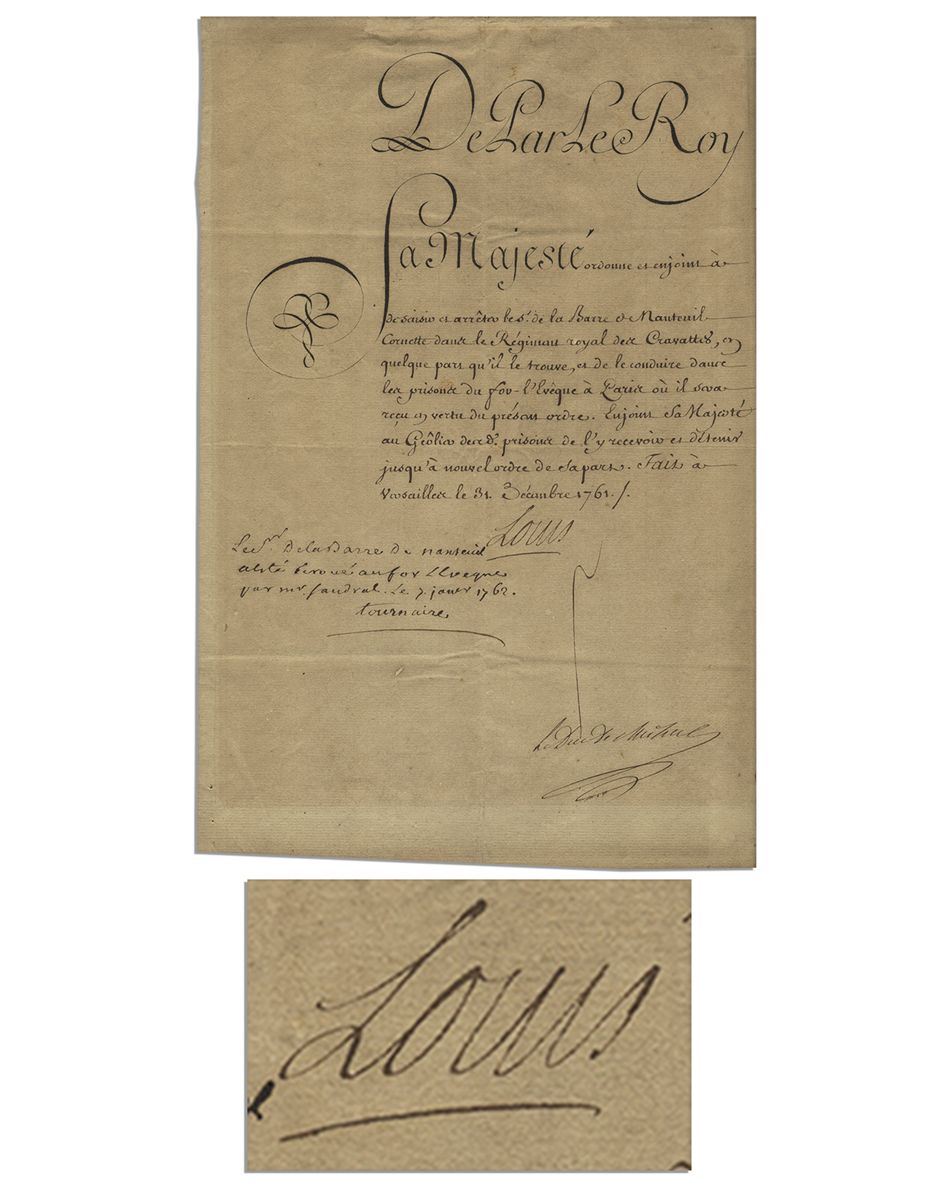 De Par Le Roy
Sa Majesté ordonne et enjoint à
de saisir et arrêter le Sr. de la Barre de Nanteuil
Cornette dans le Régiment royal des Cravattes, en
quelque part qu'il le trouve, et de le conduire dans
les prisons du for-l'Evêque à Paris où il sera
reçu en vertu du présent ordre. Enjoint Sa Majesté
au Geôlier desd. prisons de l'y recevoir et détenir
jusqu'à nouvel ordre de sa part. Fait à
Versailles le 31. Décembre 1761./.
Louis
Le Sr. De la Barre De nanteuil
a été écroué au for Lévêque
par mr. Le 7. janvr 1762.
tournaire
Le Duc De Choiseul
Louis